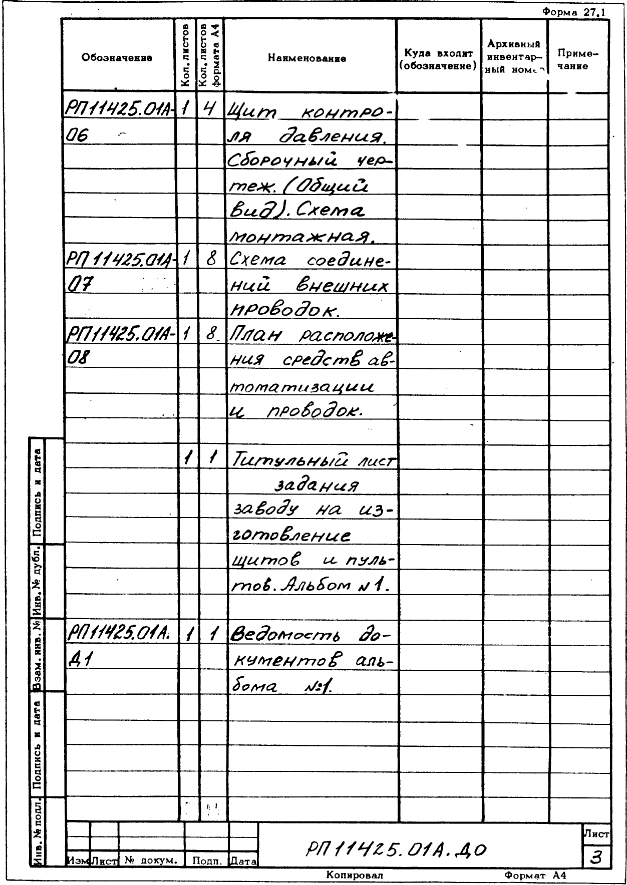 Форма 27.1
Обозначение
Кол. листов
Кол. листов формата А4
Наименование
Куда входит
(обозначение)
Архивный
инвентар-
ный номе
Приме-
чание
РП11425.01А- 1 4 Щит контро-
06 ля давления.
Сборочный чер-
теж. (Общий
вид). Схема
монтажная.
РП11425.01А- 1 8 Схема соедине-
07 ний внешних
проводок.
РП11425.01А- 1 8 План расположе-
08 ния средств ав-
томатизации
и проводок.
1 1 Титульный лист
задания
заводу на из-
готовление
щитов и пуль-
тов. Альбом №1.
РП11425.01А. 1 1 Ведомость до-
Д1 кументов аль-
бома №1.
Подпись и дата
Инв. № дубл.
Взам. инв. №
Подпись и дата
Инв. № подл.
Изм Лист № докум. Подп. Дата
РП11425.01А.ДО
Лист
3
Копировал
Формат А4